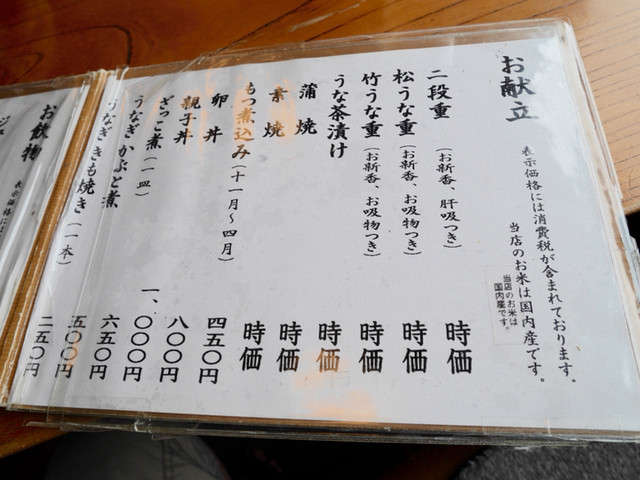 お献立
表示価格には消費税が含まれております。
当店のお米は国内産です。
当店のお米は
国内産です。
二段重 (お新香、肝吸つき) 時価
松うな重 (お新香、お吸物つき) 時価
竹うな重 (お新香、お吸物つき) 時価
うな茶漬け 時価
蒲焼 時価
素焼 時価
もつ煮込み (十一月〜四月) 四五〇円
卵丼 八〇〇円
親子丼 一、〇〇〇円
ざっこ煮 (一皿) 六五〇円
うなぎかぶと煮 五〇〇円
うなぎきも焼き (一本) 二五〇円
お飲物
表示価格には